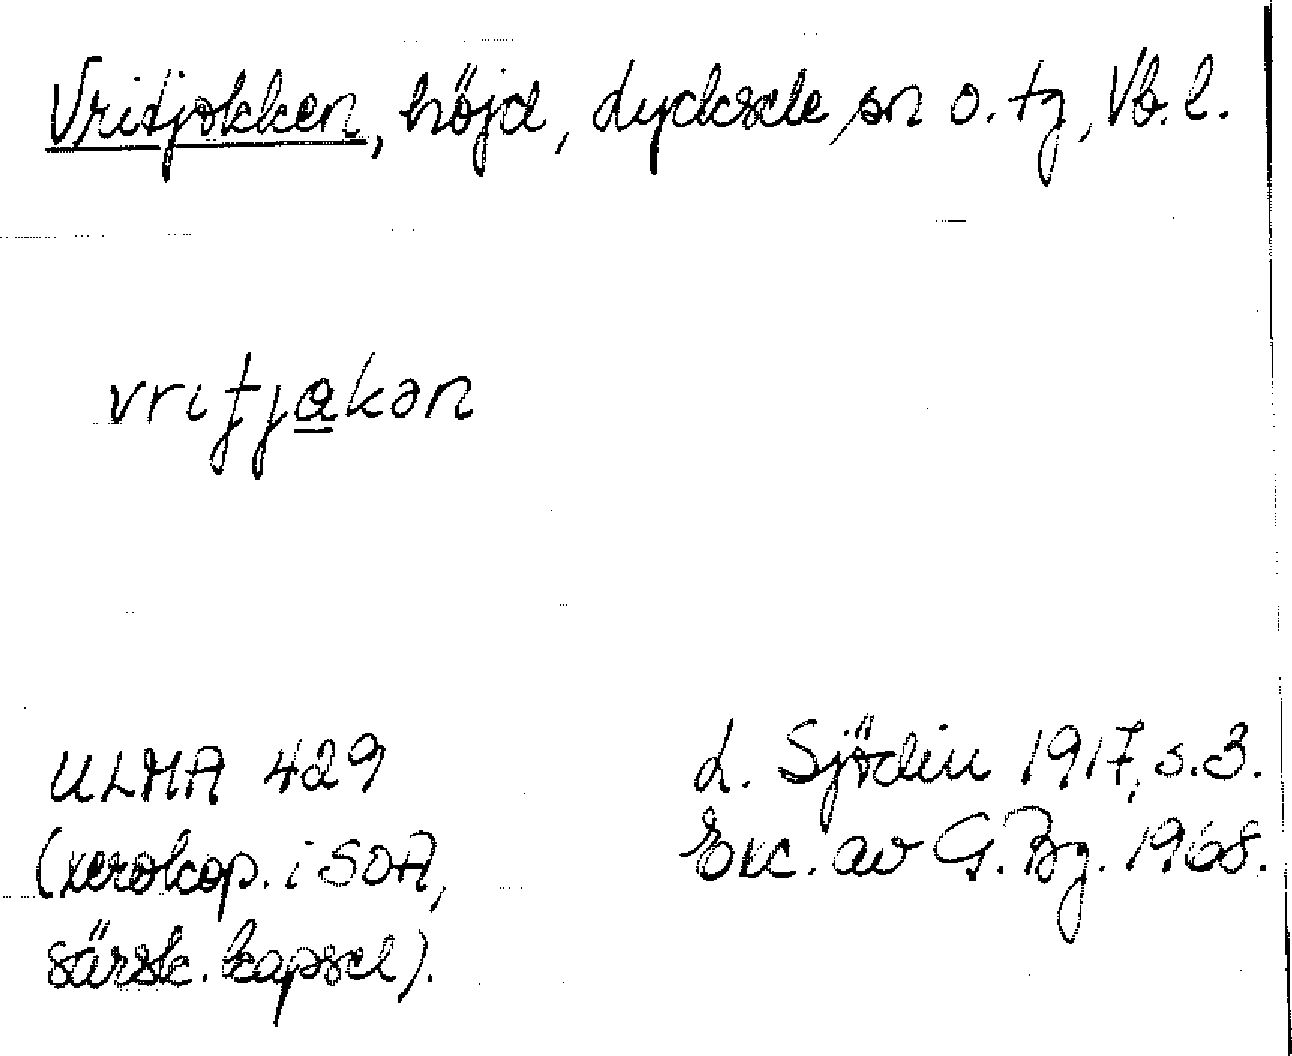 Vritjokken, höjd, Lycksele sn o. tg, Vb. l.
vritjakən
ULMA 429
(xerokop. i SOA,
särsk. kapsel).
L. Sjödin 1917, s. 3.
Exc. av G. Bg. 1968.